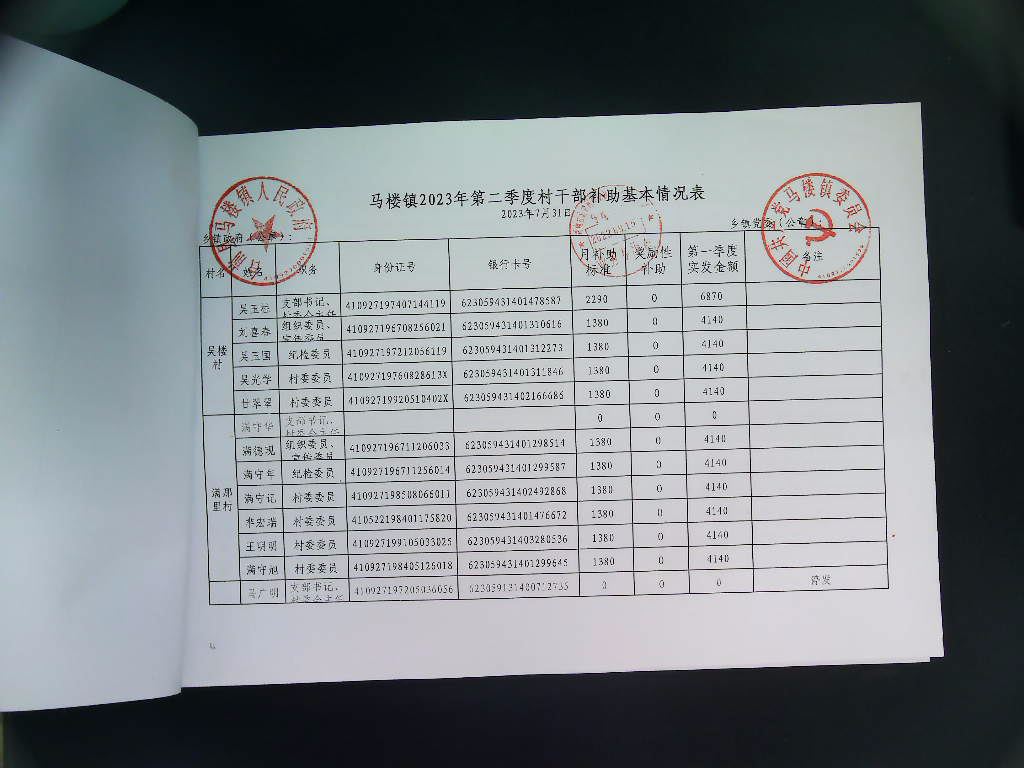 马楼镇2023年第二季度村干部补助基本情况表
2023年7月31日
马楼镇人民政府
中国共产党马楼镇委员会
乡镇政府(公章):
乡镇党委(公章):
村名 姓名 职务 身份证号 银行卡号 月补助标准 奖励性补助 第一季度实发金额 备注
吴楼村
吴玉标 支部书记、 410927197407144119 623059431401478587 2290 0 6870
刘喜春 组织委员、 410927196708256021 623059431401310616 1380 0 4140
吴玉国 纪检委员 410927197212056119 623059431401312273 1380 0 4140
吴光华 村委委员 41092719760828613X 623059431401311846 1380 0 4140
甘翠翠 村委委员 41092719920510402X 623059431402166686 1380 0 4140
满那里村
满守华 支部书记、 0 0 0
满德现 组织委员、 410927196711206033 623059431401298514 1380 0 4140
满守年 纪检委员 410927196711256014 623059431401299587 1380 0 4140
满守记 村委委员 410927198508066011 623059431402492868 1380 0 4140
李宏瑞 村委委员 410522198401175820 623059431401476672 1380 0 4140
王明明 村委委员 410927199105033025 623059431403280536 1380 0 4140
满守旭 村委委员 410927198405126018 623059431401299645 1380 0 4140
吕广明 支部书记、 410927197205036056 623059131400712735 0 0 0 暂发